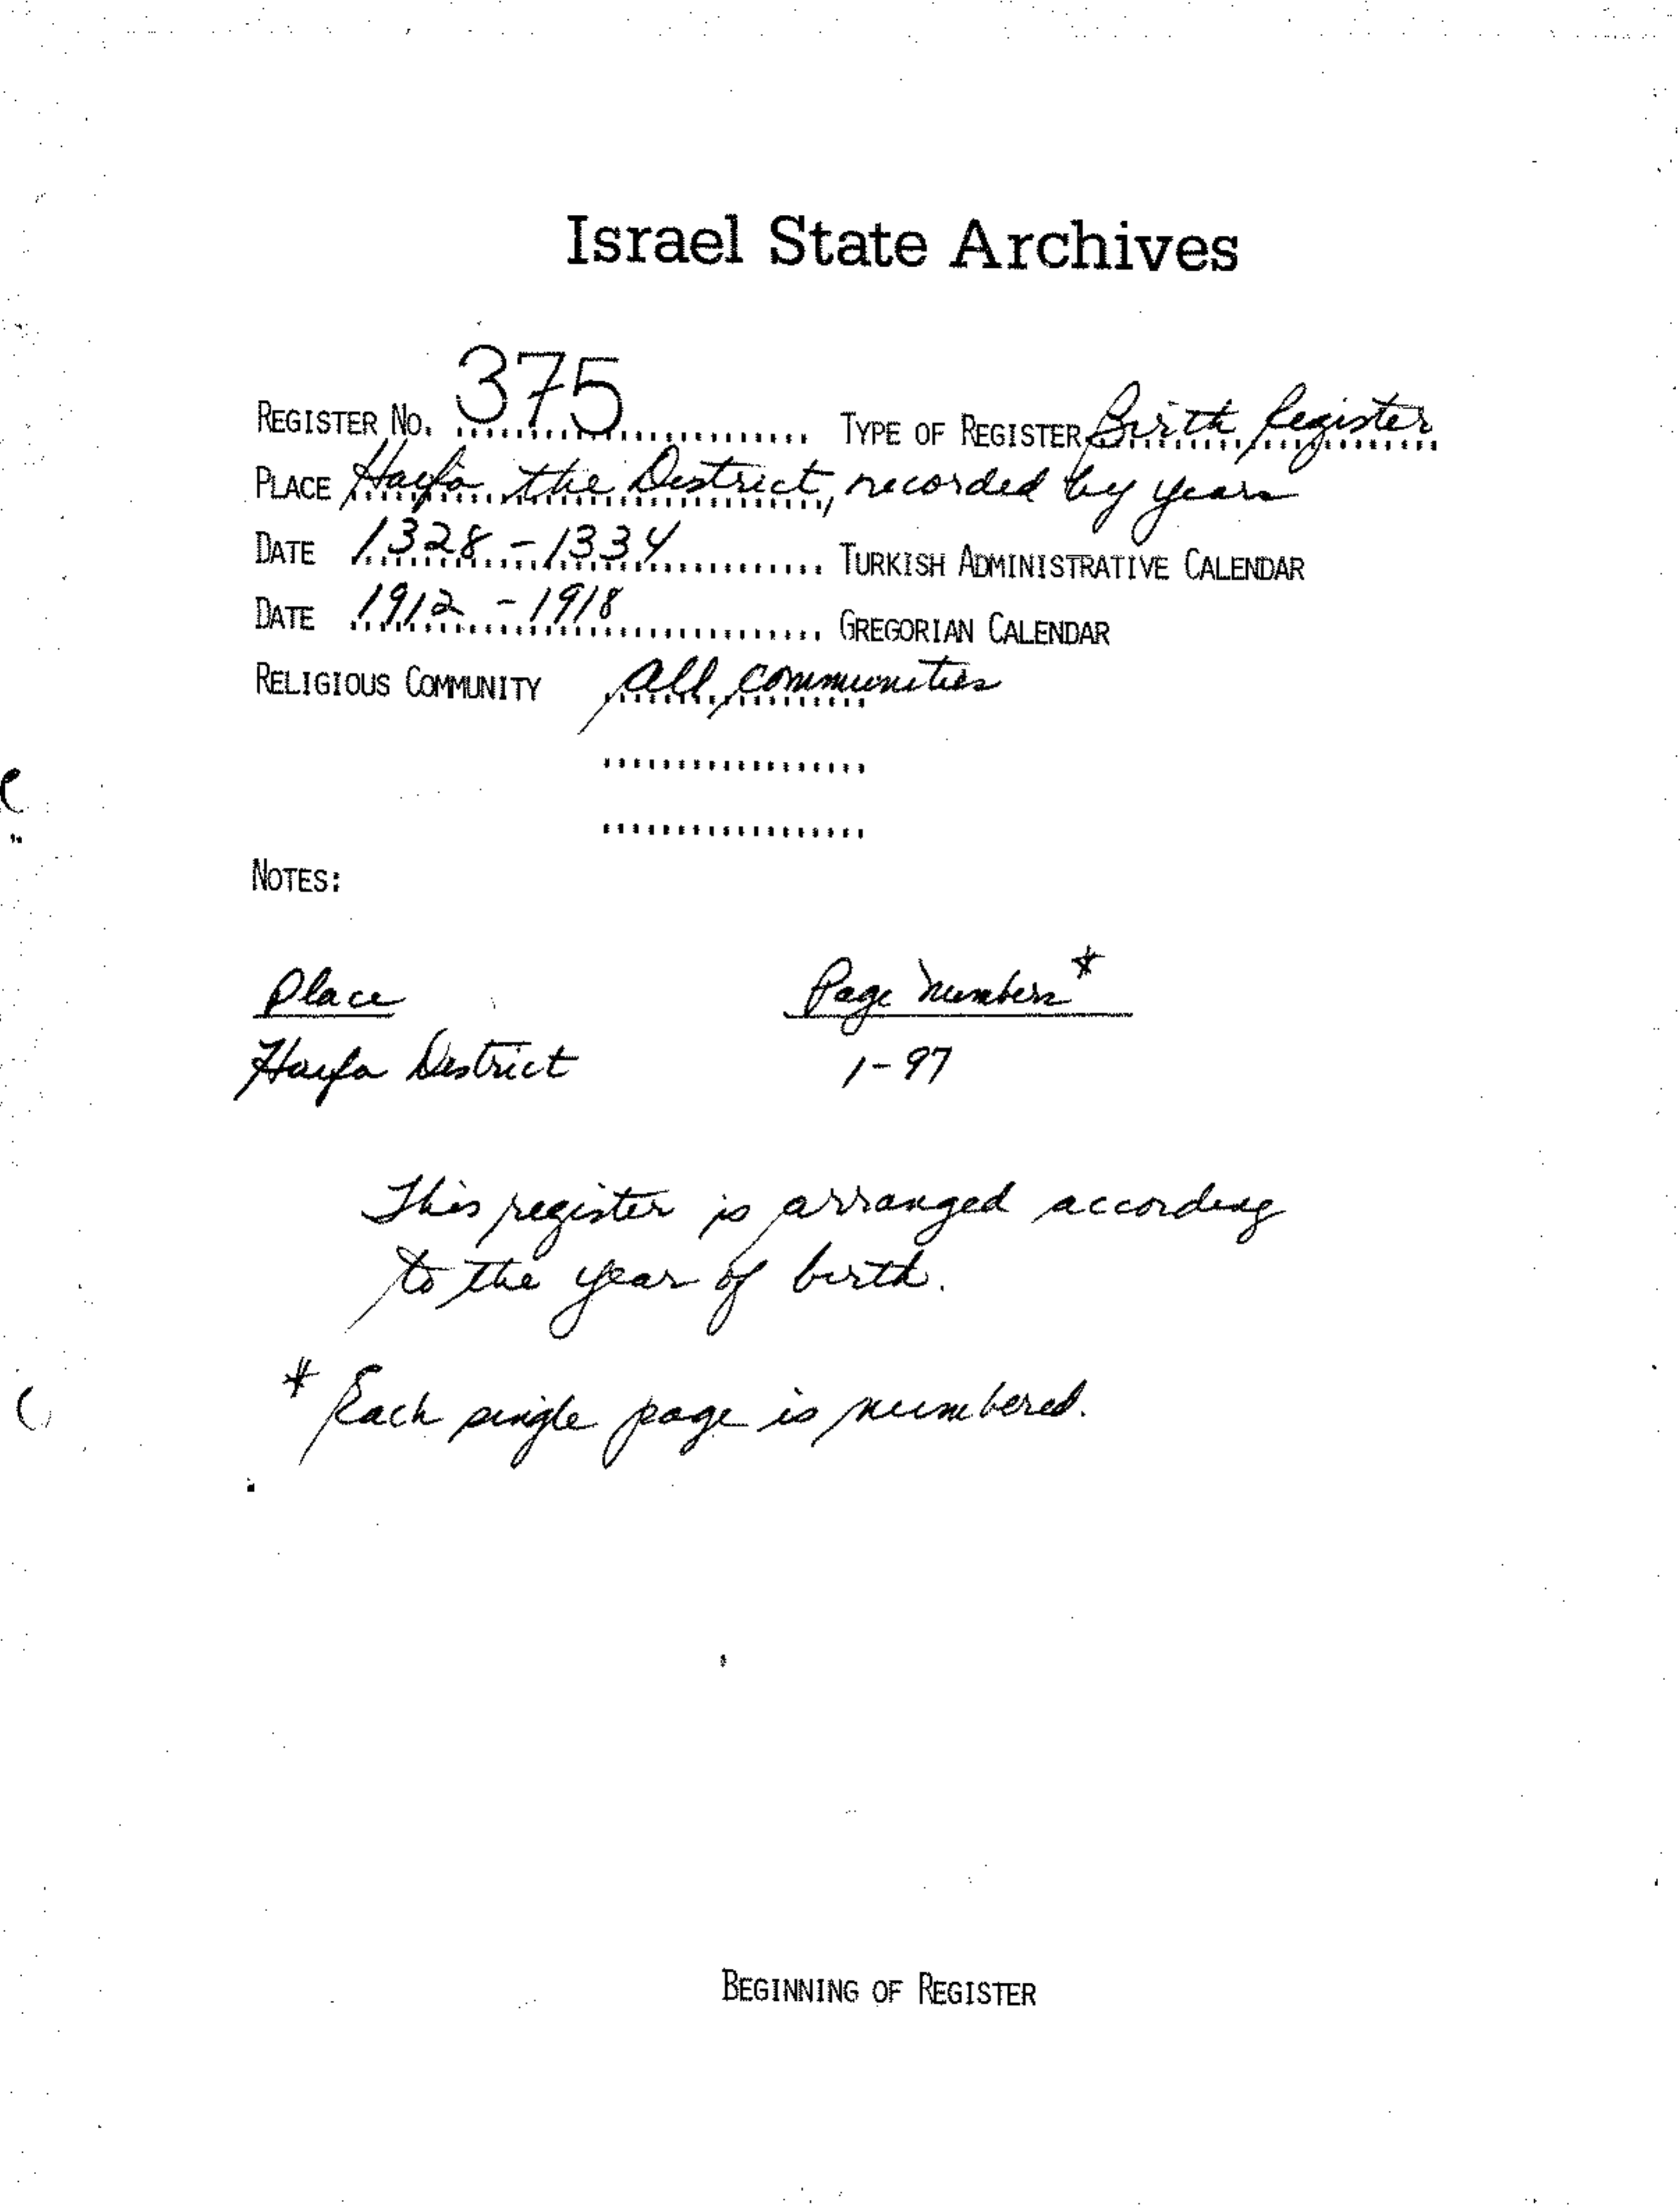 Israel State Archives
REGISTER NO. 375 TYPE OF REGISTER Birth Register
PLACE Hayfa the District, recorded by years
DATE 1328 - 1334 TURKISH ADMINISTRATIVE CALENDAR
DATE 1912 - 1918 GREGORIAN CALENDAR
RELIGIOUS COMMUNITY all communities
NOTES:
Place Page numbers *
Hayfa District 1-97
This register is arranged according
to the year of birth.
* Each single page is numbered.
BEGINNING OF REGISTER